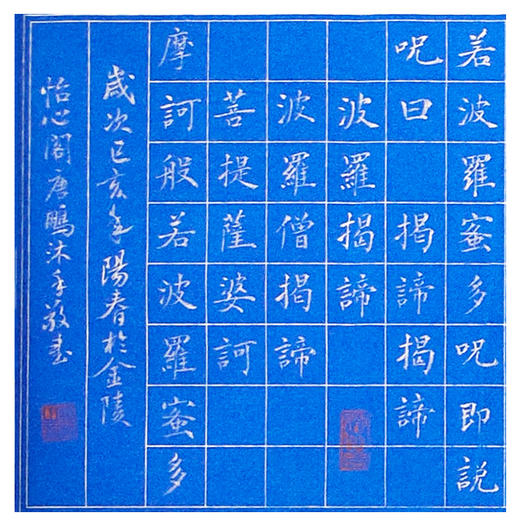 若波羅蜜多呪即說
呪曰 揭諦揭諦
波羅揭諦
波羅僧揭諦
菩提薩婆訶
摩訶般若波羅蜜多
歲次己亥年陽春於金陵
怡心閣唐鵬沐手敬書